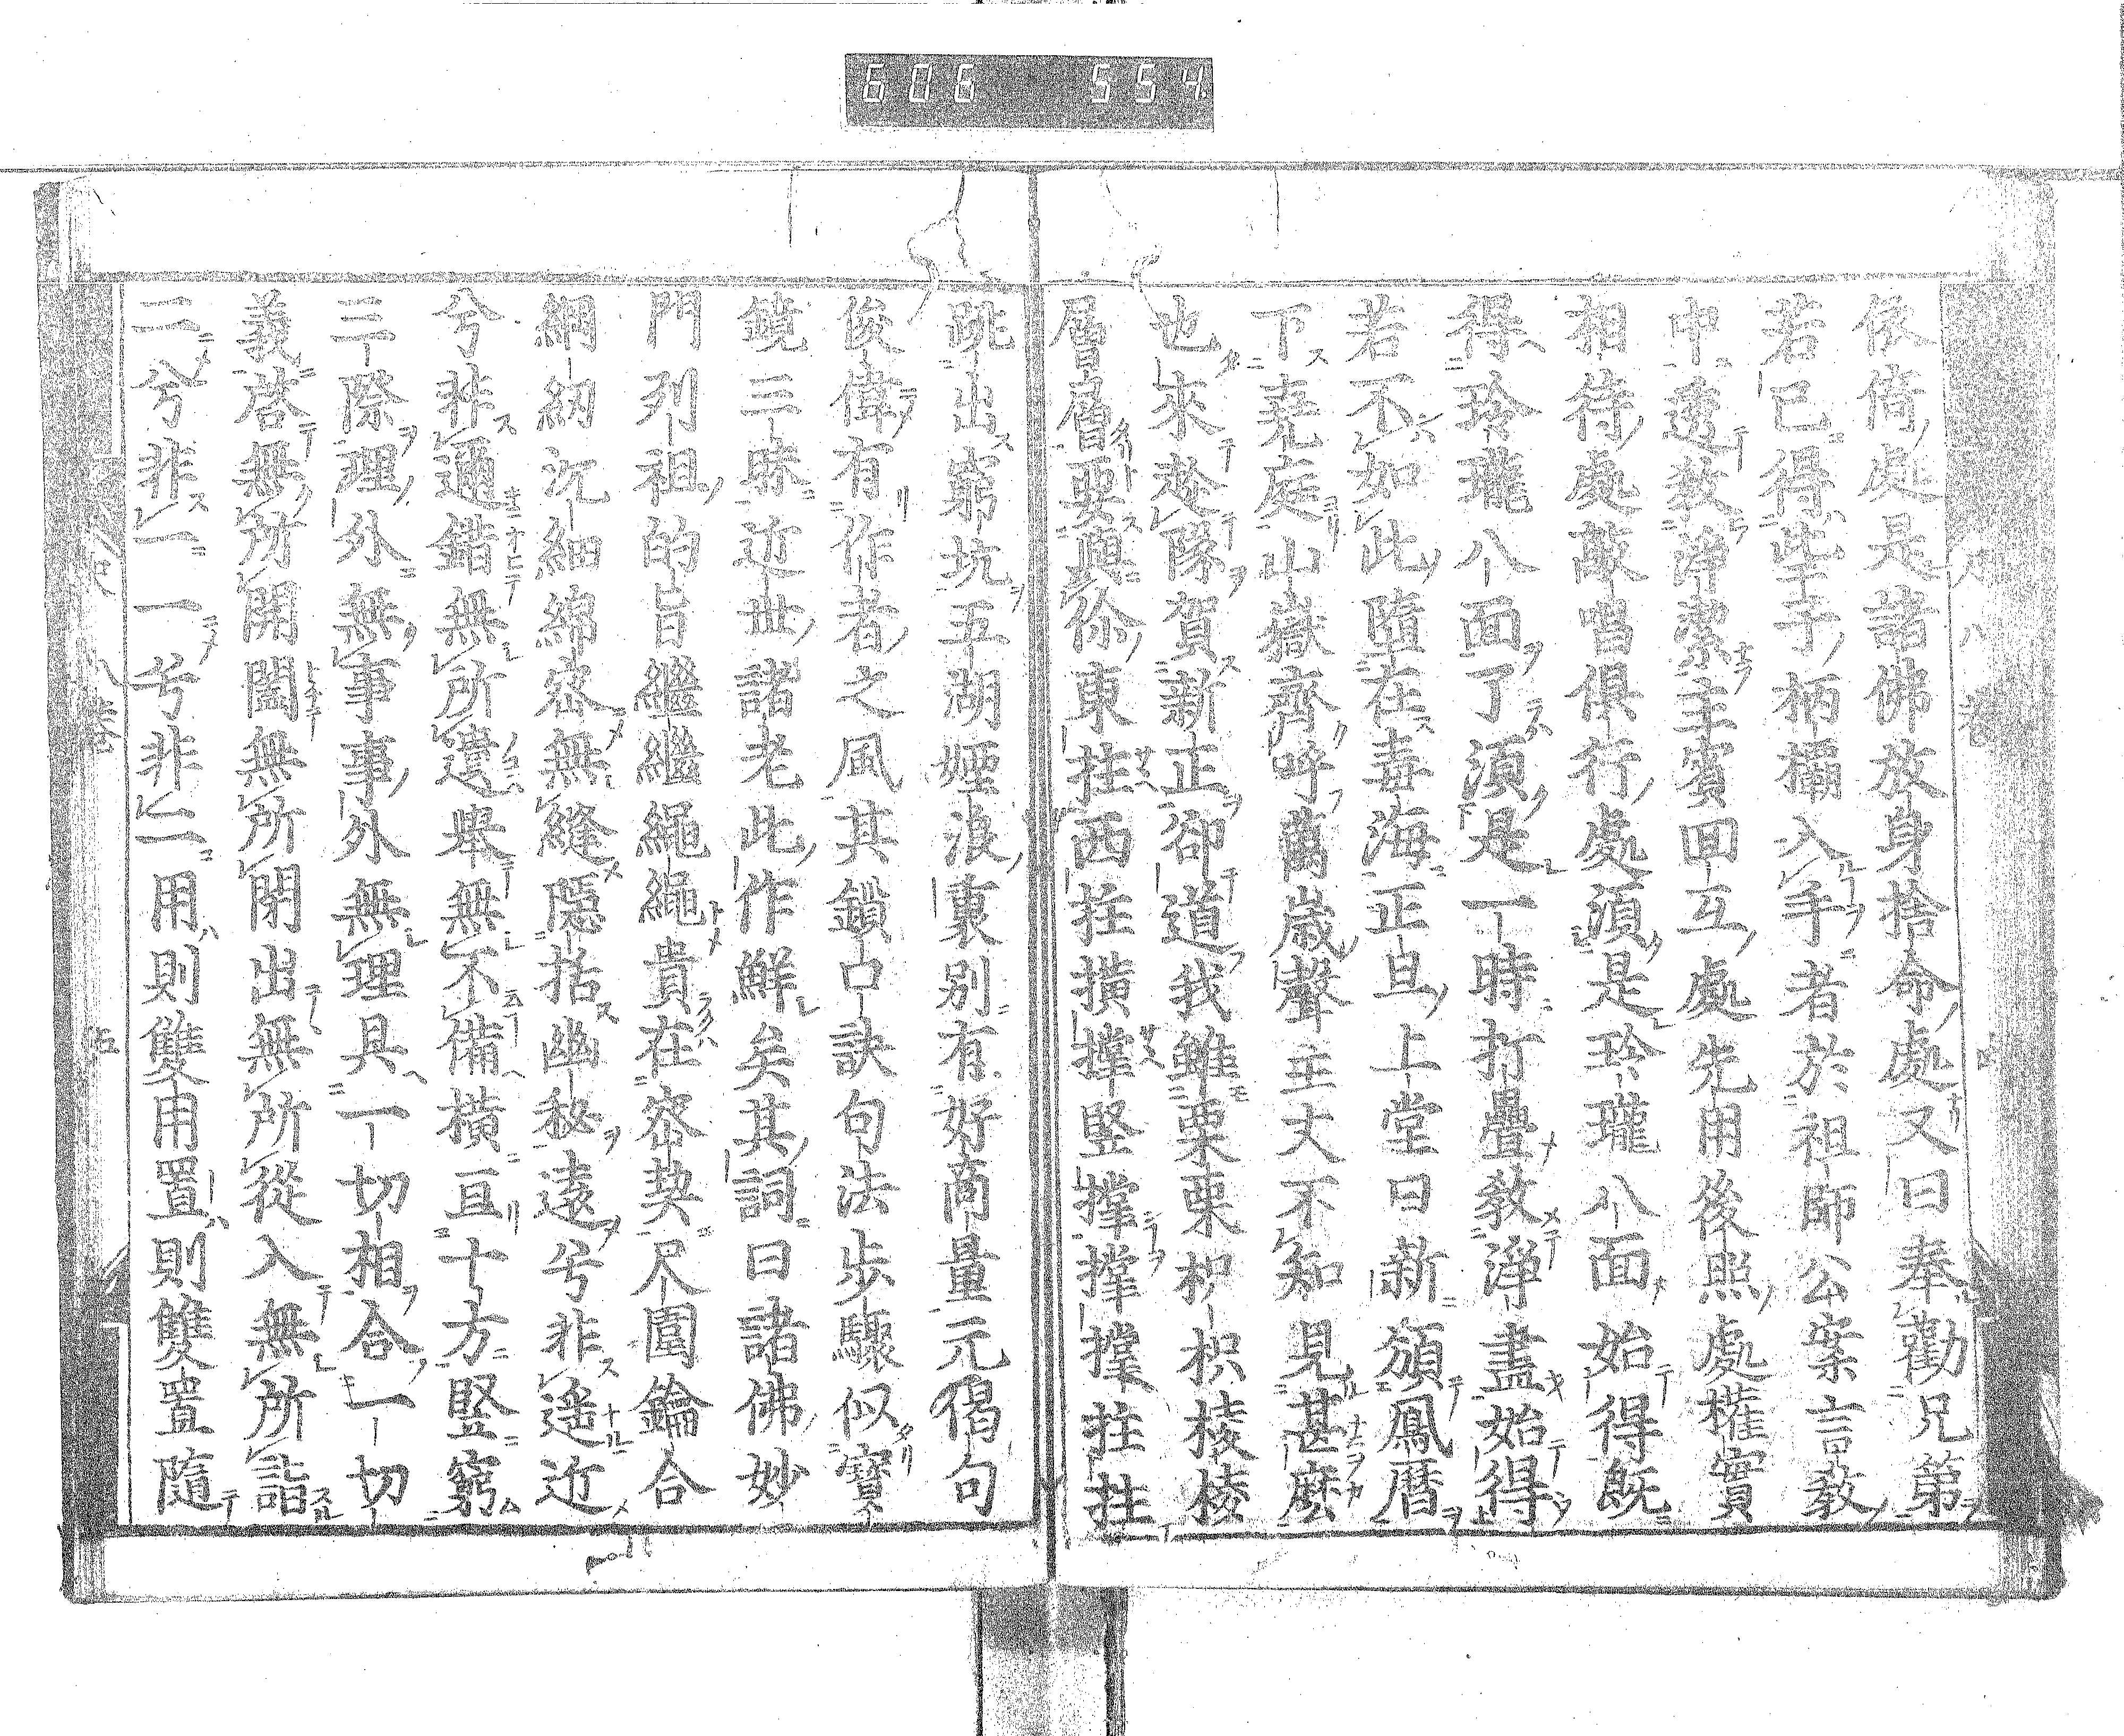 606 554
依倚處是諸佛放身捨命處又曰奉勸兄弟
若已得此子柄欛入手者於祖師公案言教
中透教淨潔主賓回互處先用後照處權實
相待處敲唱俱行處須是玲瓏八面始得既
得玲瓏八面了須是一時打疊教淨盡始得
若不如此墮在毒海正旦上堂曰新頒鳳曆
下堯庭山嶽齊呼萬歲聲主丈不知見甚麼
也來趁隊賀新正卻道我雖栗栗枳枳棱棱
層層要與你東拄西拄橫撐豎撐撐撐拄拄
跳出窮坑五湖煙浪裏別有好商量元偈句
俊偉有作者之風其鎖口訣句法步驟似寶
鏡三昧近世諸老此作鮮矣其詞曰諸佛妙
門列祖的旨繼繼繩繩貴在密契尺圍鑰合
綱紉沉細綿密無縫隱括幽秘遠兮非遙近
兮非邇錯無所遺舉無不備橫亘十方豎窮
三際理外無事事外無理具一切相合一切
義啓無所開闔無所閉出無所從入無所詣
二兮非一一兮非二用則雙用置則雙置隨
八卷
五